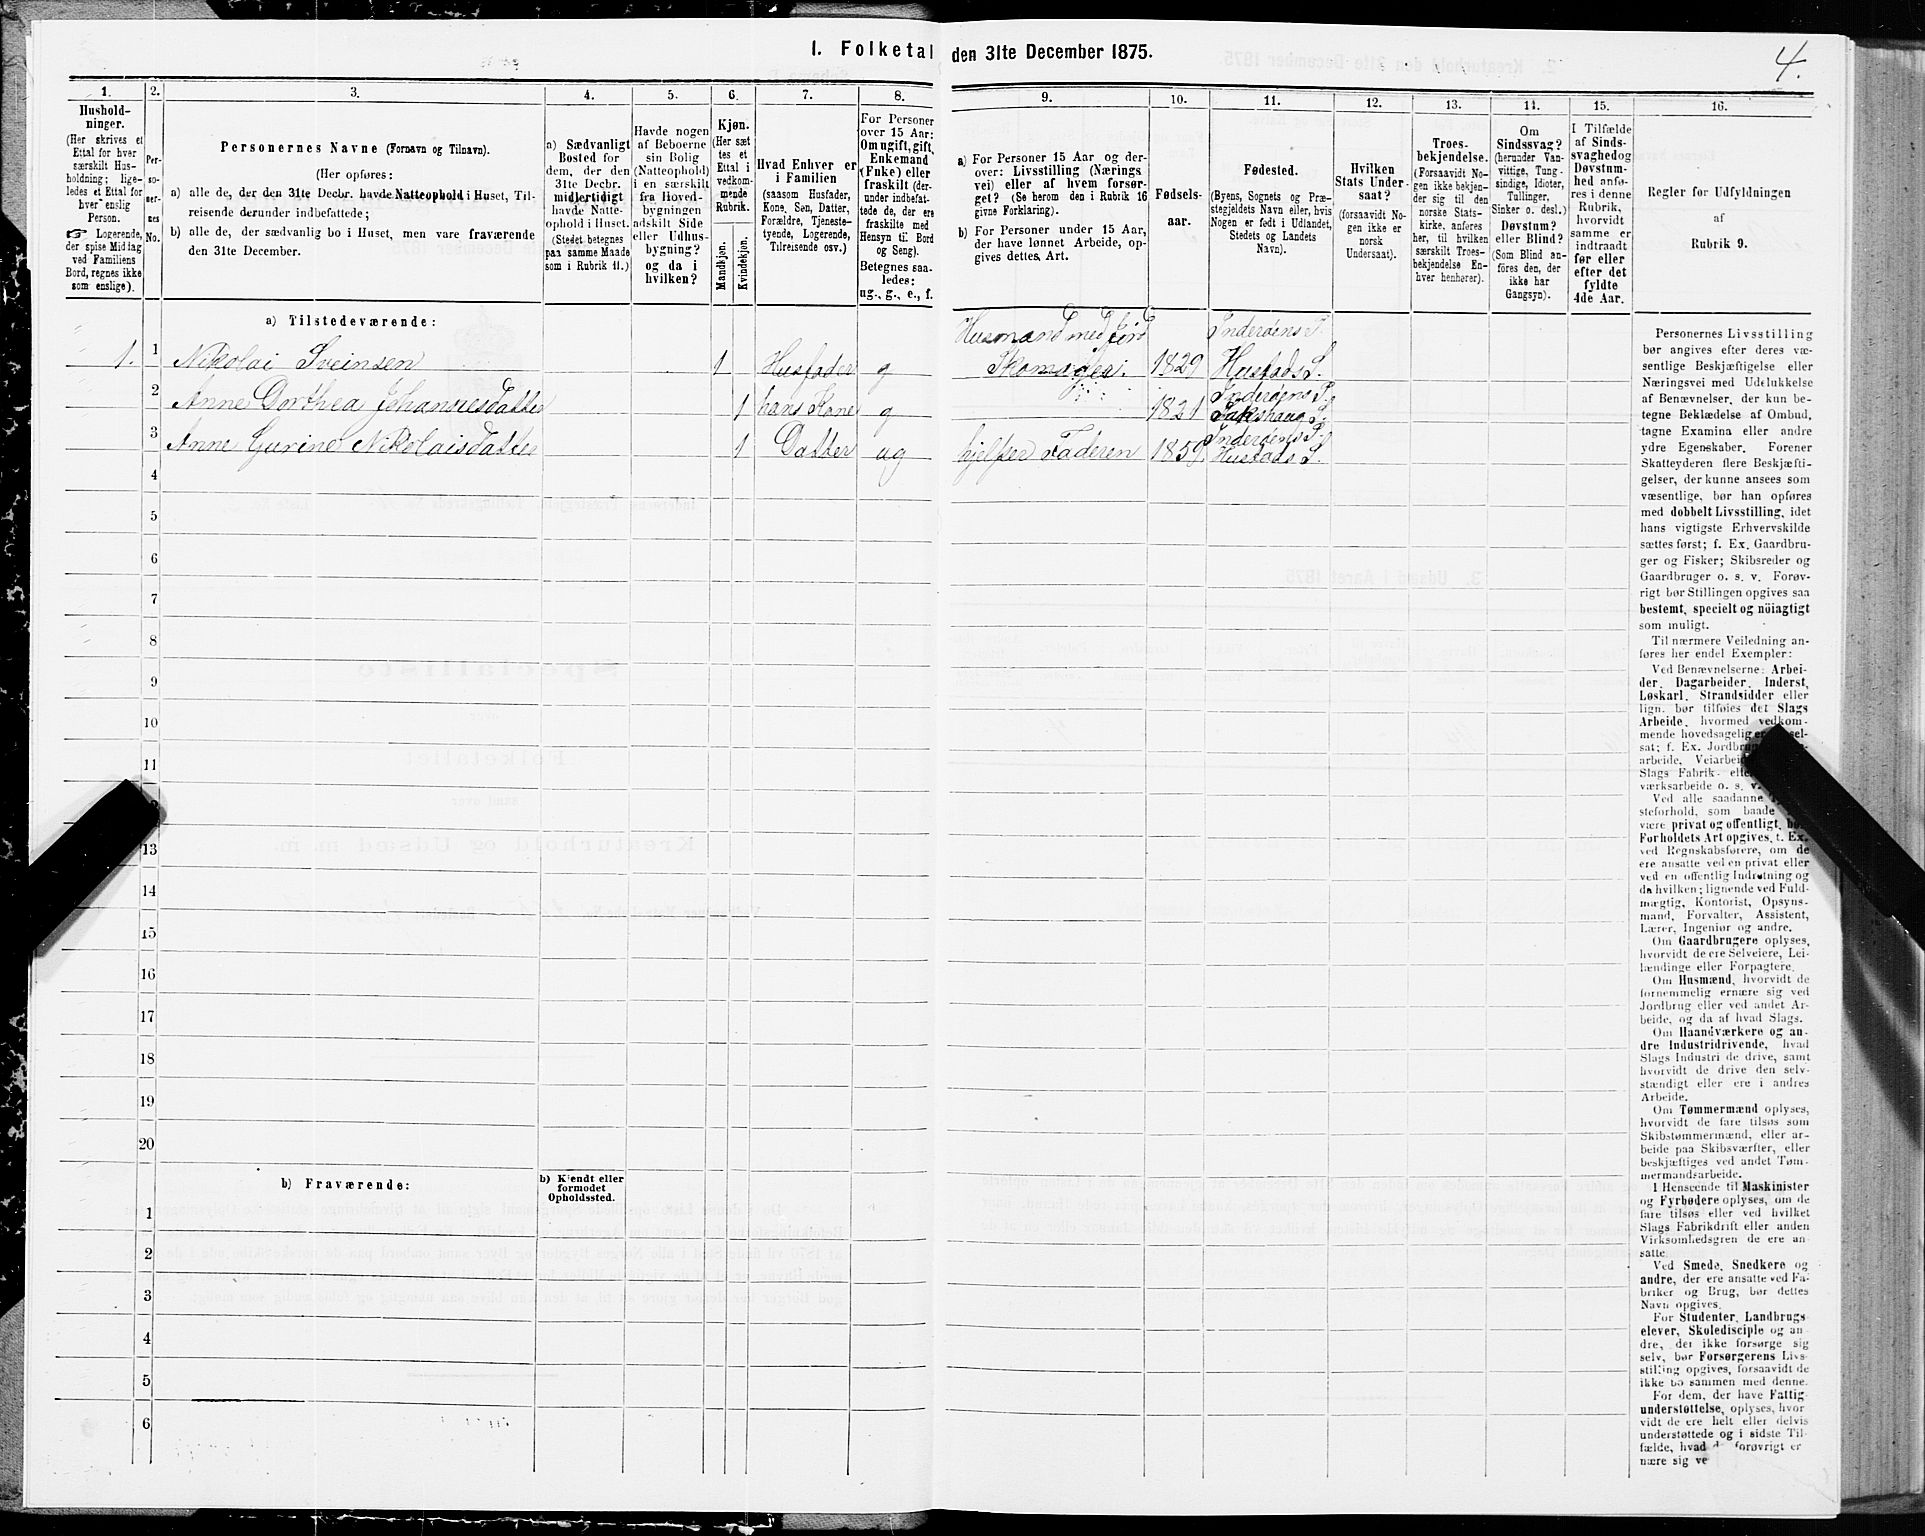 1. Folketal den 31te December 1875.
4.
1.
Hushold-
ninger.
(Her skrives et
Ettal for hver
særskilt Hus-
holdning; lige-
ledes et Ettal for
hver enslig
Person.
☞ Logerende,
der spise Middag
ved Familiens
Bord, regnes ikke
som enslige).
2.
Per-
so-
ner-
nes
No.
3.
Personernes Navne (Fornavn og Tilnavn).
(Her opføres:
a) alle de, der den 31te Decbr. havde Natteophold i Huset, Til-
reisende derunder indbefattede;
b) alle de, der sædvanlig bo i Huset, men vare fraværende
den 31te December.
4.
a) Sædvanligt
Bosted for
dem, der den
31te Decbr.
midlertidigt
havde Natte-
ophold i Huset.
(Stedet betegnes
paa samme Maade
som i Rubrik 11.)
5.
Havde nogen
af Beboerne
sin Bolig
(Natteophold)
i en særskilt
fra Hoved-
bygningen
adskilt Side
eller Udhus-
bygning?
og da i
hvilken?
6.
Kjøn.
(Her sæt
tes et
Ettal i
vedkom-
mende
Rubrik.
Mandkjøn.
Kvindekjøn.
7.
Hvad Enhver er
i Familien
(saasom Husfader,
Kone, Søn, Datter,
Forældre, Tjeneste-
tyende, Logerende,
Tilreisende osv.)
8.
For Personer
over 15 Aar:
Om ugift, gift,
Enkemand
(Enke) eller
fraskilt (der-
under indbefat-
tede de, der ere
fraskilte med
Hensyn til Bord
og Seng).
Betegnes saa-
ledes:
ug., g., e., f.
9.
a) For Personer 15 Aar og der-
over: Livsstilling (Nærings
vei) eller af hvem forsør-
get? (Se herom den i Rubrik 16
givne Forklaring).
b) For Personer under 15 Aar,
der have lønnet Arbeide, op-
gives dettes, Art.
10.
Fødsels-
aar.
11.
Fødested.
(Byens, Sognets og Præ-
stegjeldets Navn eller, hvis
Nogen er født i Udlandet,
Stedets og Landets
Navn).
12.
Hvilken
Stats Under-
saat?
(forsaavidt No-
gen ikke er
norsk
Undersaat).
13.
Troes-
bekjendelse.
(Forsaavidt No-
gen ikke bekjen-
der sig til den
norske Stats-
kirke, anføres
her, til hvilken
særskilt Troes-
bekjendelse En-
hver henhører).
14.
Om
Sindssvag?
(herunder Van-
vittige, Tung-
sindige, Idioter,
Tullinger,
Sinker o. desl.)
Døvstum?
eller Blind?
(Som Blind an-
föres den, der
ikke har
Gangsyn).
15.
I Tilfælde
af Sinds-
svaghed og
Døvstum-
hed anfø-
res i denne
Rubrik,
hvorvidt
samme er
indtraadt
før eller
efter det
fyldte
4de Aar.
16.
Regler for Udfyldningen
af
Rubrik 9.
a) Tilstedeværende:
1. 1 Nikolai Sveinsen 1 Husfader g Husmand med jord 1829 Inderøens P.
Hustads S.
2 Anne Dorthea Johannesdatter 1 hans Kone g 1821 Inderøens P.
Sakshaug S.
3 Anne Gurine Nikolaisdatter 1 Datter ug hjelper Faderen 1859 Inderøens P.
Hustads S.
4
5
6
7
8
9
10
11
13
14
15
16
17
18
19
20
b) Fraværende:
b) Kjendt eller
formodet
Opholdssted.
1
2
3
4
5
6
Personernes Livsstilling
bør angives efter deres væ-
sentlige Beskjæftigelse eller
Næringsvei med Udelukkelse
af Benævnelser, der kun be-
tegne Beklædelse af Ombud,
tagne Examina eller andre
ydre Egenskaber. Forener
Skatteyderen flere Beskjæfti-
gelser, der kunne ansees som
væsentlige, bør han opføres
med dobbelt Livsstilling, idet
hans vigtigste Erhvervskilde
sættes først; f. Ex. Gaardbru-
ger og Fisker; Skibsreder og
Gaardbruger o. s. v. Forøv-
rigt bør Stillingen opgives saa
bestemt, specielt og nöiagtigt
som muligt.
Til nærmere Veiledning an-
føres her endel Exempler:
Ved Benævnelserne: Arbei-
der, Dagarbeider, Inderst,
Løskarl, Strandsidder eller
lign. bør tilføies det Slags
Arbeide, hvormed vedkom-
mende hovedsagelig er
sat; f. Ex.
arbeide,
Slags Fabrik-
værksarbeide o. s. v.
Ved alle saadanne
steforhold, som baade
være privat og offentligt,
Forholdets Art opgives, t. Ex.
ved Regnskabsførere, om de
ere ansatte ved en privat eller
ved en offentlig Indretning og
da hvilken; lignende ved Fuld-
mægtig, Kontorist, Opsyns-
mand, Forvalter, Assistent,
Lærer, Ingeniør og andre.
Om Gaardbrugere oplyses,
hvorvidt de ere Selveiere, Lei-
lændinge eller Forpagtere.
Om Husmænd, hvorvidt de
fornemmelig ernære sig ved
Jordbrug eller ved andet Ar-
beide, og da af hvad Slags.
Om Haandværkere og an-
dre Industridrivende, hvad
Slags Industri de drive, samt
hvorvidt de drive den selv-
stændigt eller ere i andres
Arbeide.
Om Tømmermænd oplyses,
hvorvidt de fare tilsøs som
Skibstømmermænd, eller ar-
beide paa Skibsværfter, eller
beskjæftiges ved andet Tøm-
mermandsarbeide.
I Henseende til Maskinister
og Fyrbødere oplyses, om de
fare tilsøs eller ved hvilket
Slags Fabrikdrift eller anden
Virksomhedsgren de ere an-
satte.
Ved Smede, Snedkere og
andre, der ere ansatte ved Fa-
briker og Brug, bør dettes
Navn opgives.
For Studenter, Landbrugs-
elever, Skoledisciple og an-
dre, der ikke forsørge sig
selv, bør Forsørgerens Livs-
stilling opgives, forsaavidt de
ikke bo sammen med denne.
For dem, der have Fattig-
understøttelse, oplyses, hvor
vidt de ere helt eller delvis
understøttede og i sidste Til-
fælde, hvad forøvrigt er
nære sig ve